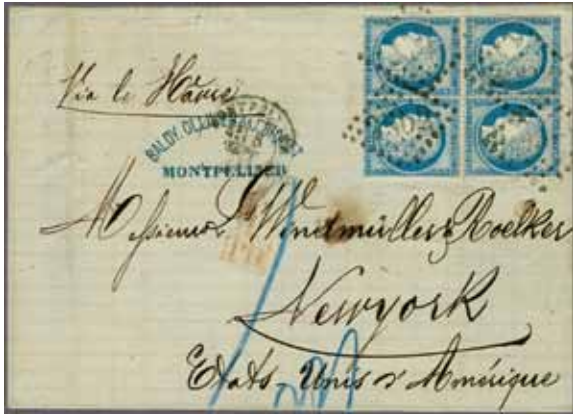 Via le Hâvre
BALDY
MONTPELLIER
Messieurs Windmüller & Roelker
New york
Etats Unis d'Amérique